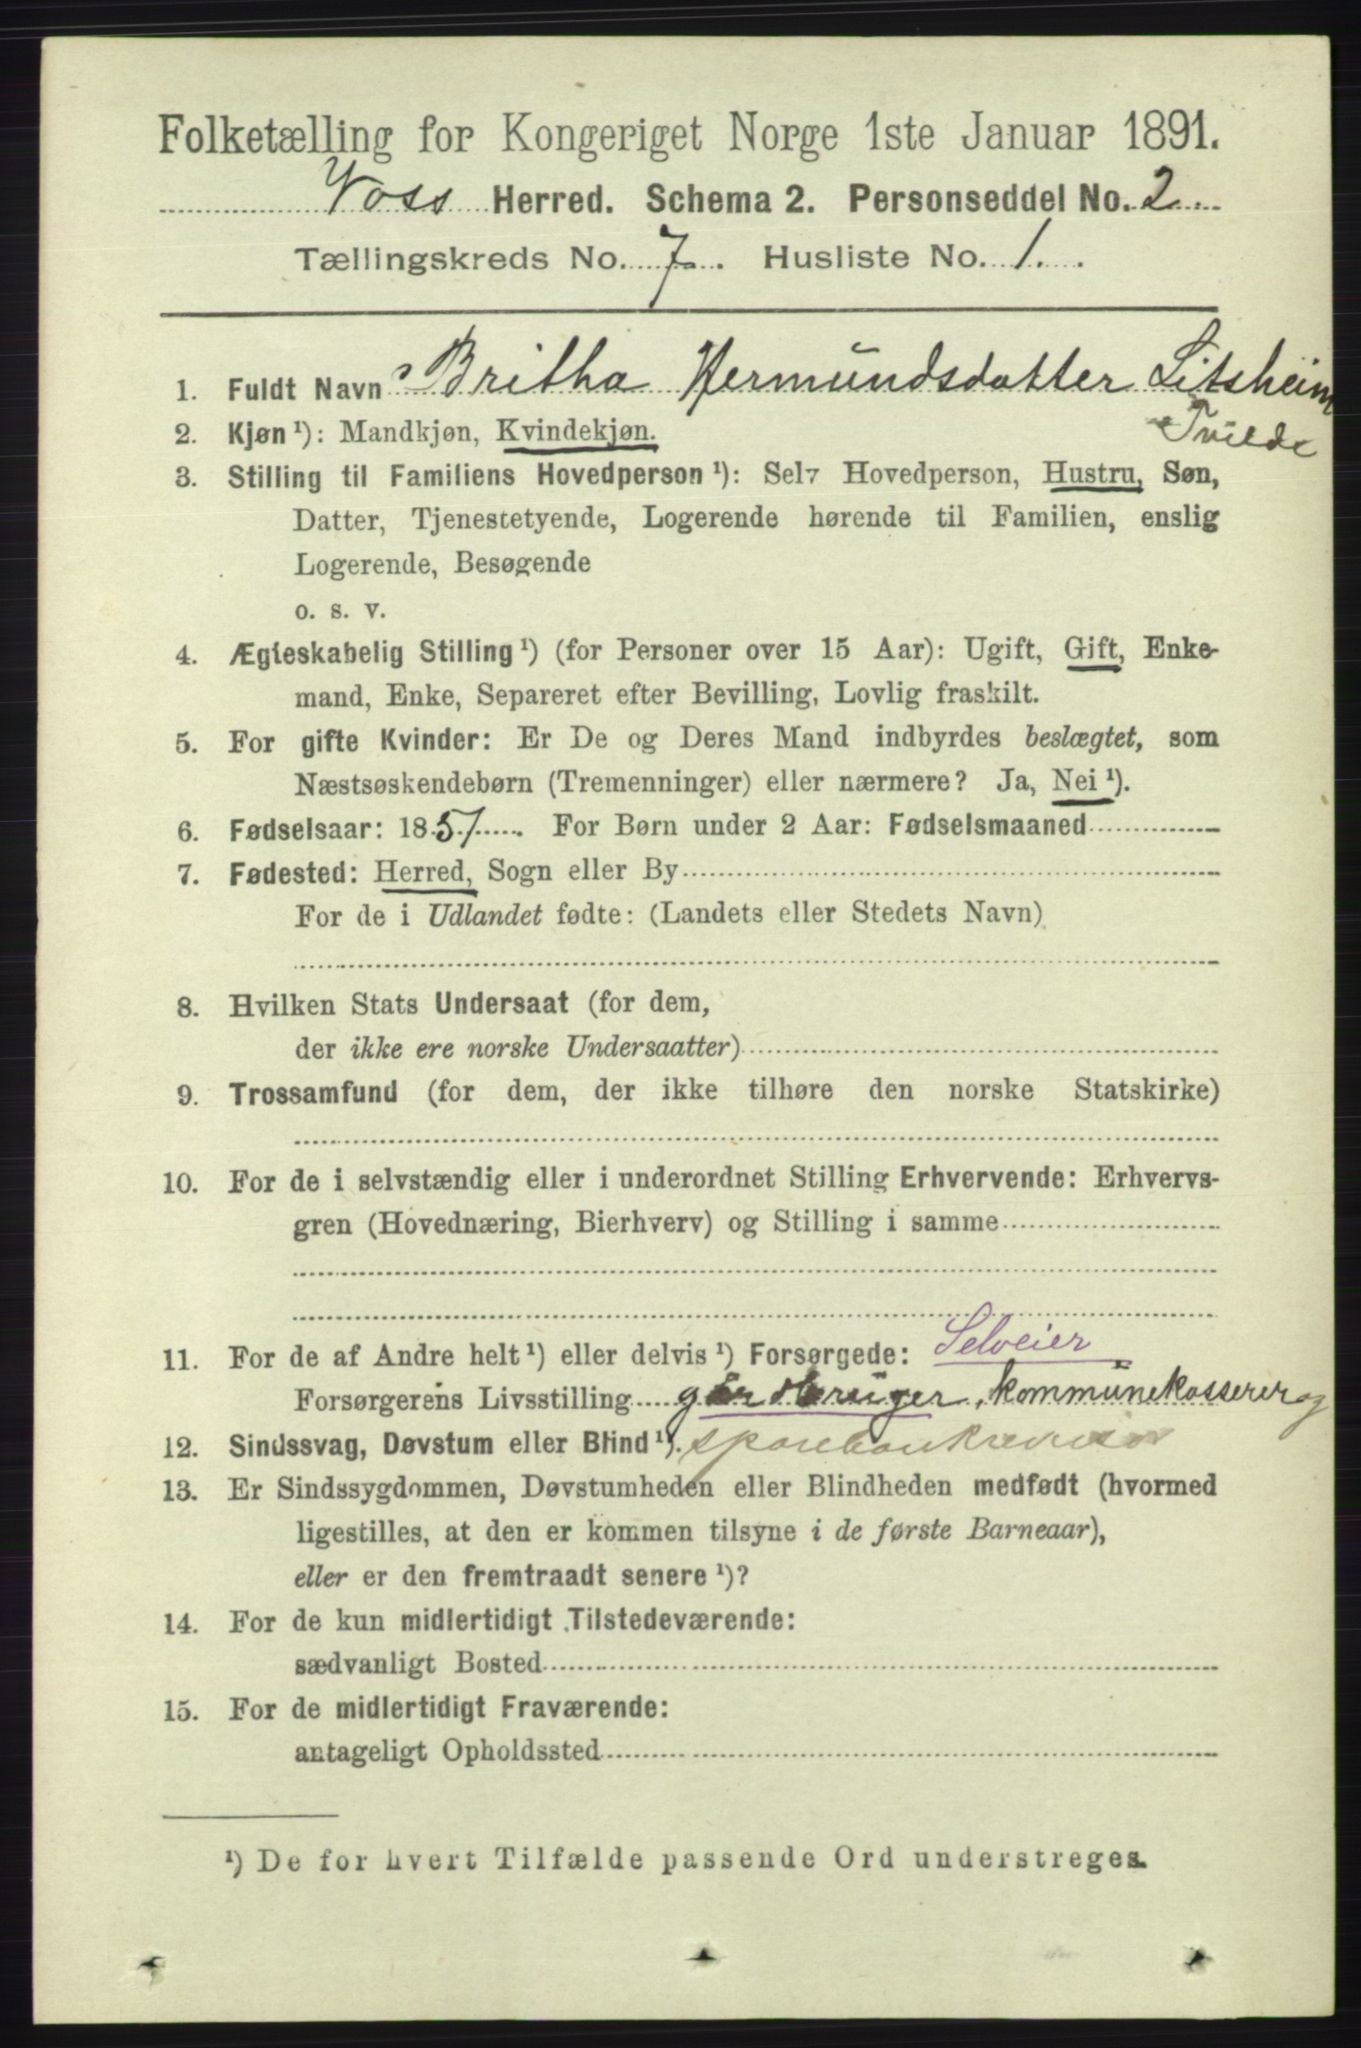 Folketælling for Kongeriget Norge 1ste Januar 1891.
Voss Herred. Schema 2. Personseddel No. 2
Tællingskreds No. 7. Husliste No. 1.
1. Fuldt Navn Britha Hermundsdatter Litsheim
Tvilde
2. Kjøn ¹): Mandkjøn, Kvindekjøn.
3. Stilling til Familiens Hovedperson ¹): Selv Hovedperson, Hustru, Søn,
Datter, Tjenestetyende, Logerende hørende til Familien, enslig
Logerende, Besøgende
o. s. v.
4. Ægteskabelig Stilling ¹) (for Personer over 15 Aar): Ugift, Gift, Enke-
mand, Enke, Separeret efter Bevilling, Lovlig fraskilt.
5. For gifte Kvinder: Er De og Deres Mand indbyrdes beslægtet, som
Næstsøskendebørn (Tremenninger) eller nærmere? Ja, Nei ¹).
6. Fødselsaar: 1857. For Børn under 2 Aar: Fødselsmaaned
7. Fødested: Herred, Sogn eller By
For de i Udlandet fødte: (Landets eller Stedets Navn)
8. Hvilken Stats Undersaat (for dem,
der ikke ere norske Undersaatter)
9. Trossamfund (for dem, der ikke tilhøre den norske Statskirke)
10. For de i selvstændig eller i underordnet Stilling Erhvervende: Erhvervs-
gren (Hovednæring, Bierhverv) og Stilling i samme
Selveier
11. For de af Andre helt ¹) eller delvis ¹) Forsørgede:
Forsørgerens Livsstilling gårdbruger, kommunekasserer og
12. Sindssvag, Døvstum eller Blind ¹). sparebankrevisor
13. Er Sindssygdommen, Døvstumheden eller Blindheden medfødt (hvormed
ligestilles, at den er kommen tilsyne i de første Barneaar),
eller er den fremtraadt senere ¹)?
14. For de kun midlertidigt Tilstedeværende:
sædvanligt Bosted
15. For de midlertidigt Fraværende:
antageligt Opholdssted
¹) De for hvert Tilfælde passende Ord understreges.